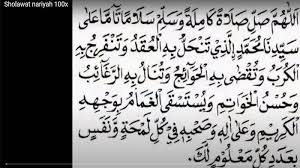 Sholawat nariyah 100x
اَللّٰهُمَّ صَلِّ صَلَاةً كَامِلَةً وَسَلِّمْ سَلَامًا تَامًّا عَلَى
سَيِّدِنَا مُحَمَّدِ الَّذِيْ تَنْحَلُّ بِهِ الْعُقَدُ وَتَنْفَرِجُ بِهِ
الْكُرَبُ وَتُقْضَى بِهِ الْحَوَائِجُ وَتُنَالُ بِهِ الرَّغَائِبُ
وَحُسْنُ الْخَوَاتِمِ وَيُسْتَسْقَى الْغَمَامُ بِوَجْهِهِ
الْكَرِيْمِ وَعَلَى اٰلِهِ وَصَحْبِهِ فِيْ كُلِّ لَمْحَةٍ وَنَفَسٍ
بِعَدَدِ كُلِّ مَعْلُوْمٍ لَكَ